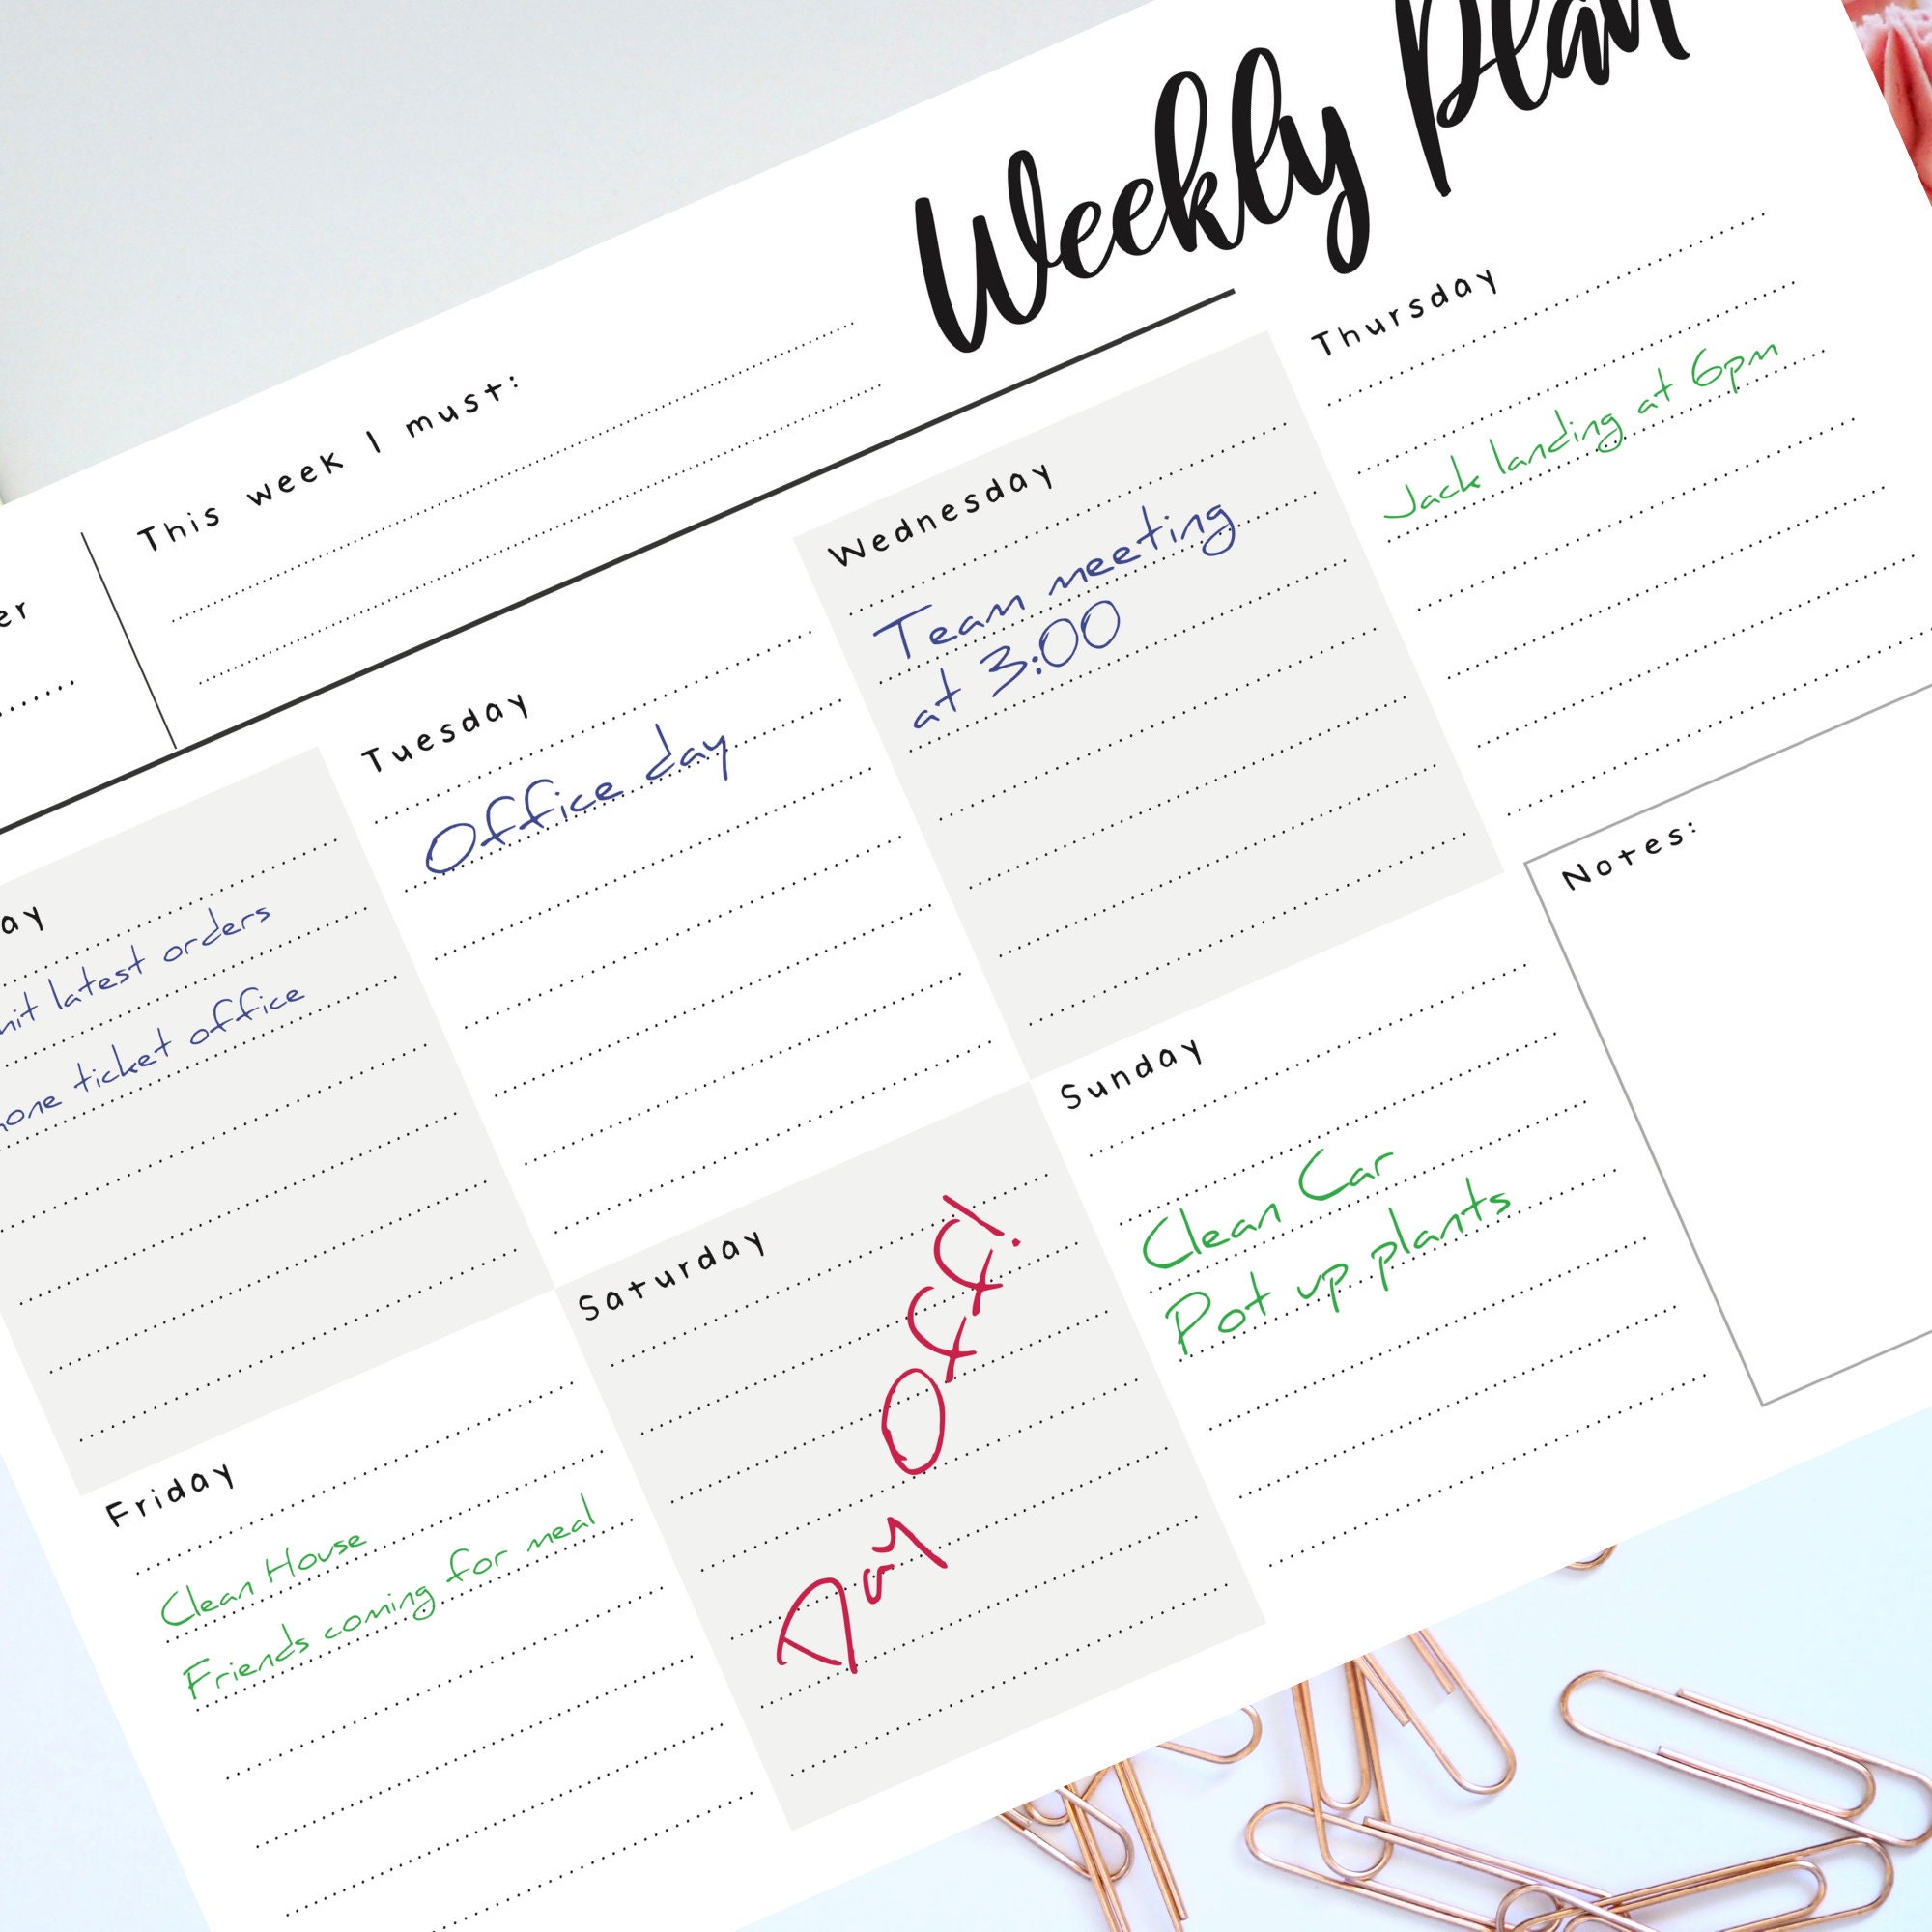 Weekly Plan
This week I must:
latest orders
ticket office
Tuesday
Office day
Wednesday
Team meeting
at 3:00
Thursday
Jack landing at 6pm
Friday
Clean House
Friends coming for meal
Saturday
Day Off!
Sunday
Clean Car
Pot up plants
Notes: